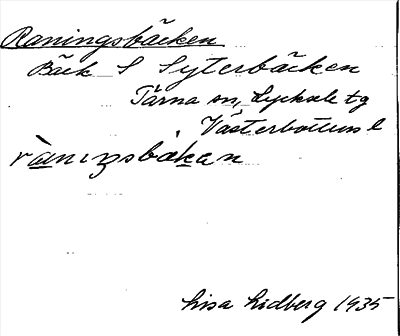 Raningsbäcken
Bäck S Syterbäcken
Tärna sn, Lycksele tg
Västerbottens l
rànıŋsbäkan
Lisa Lidberg 1935